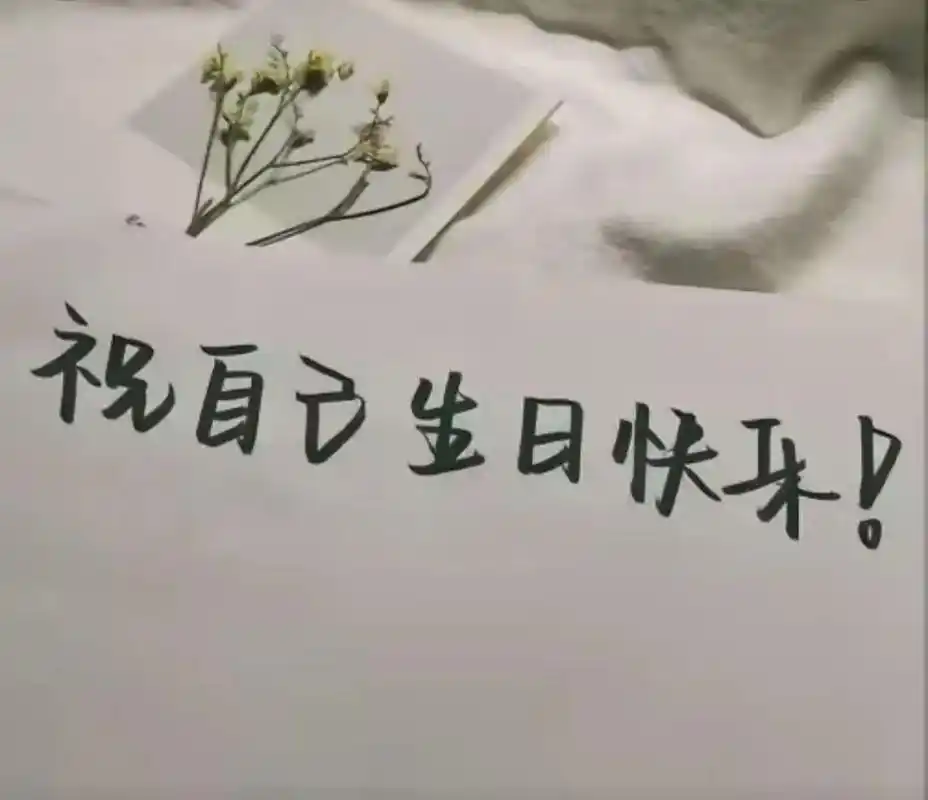 祝自己生日快乐!